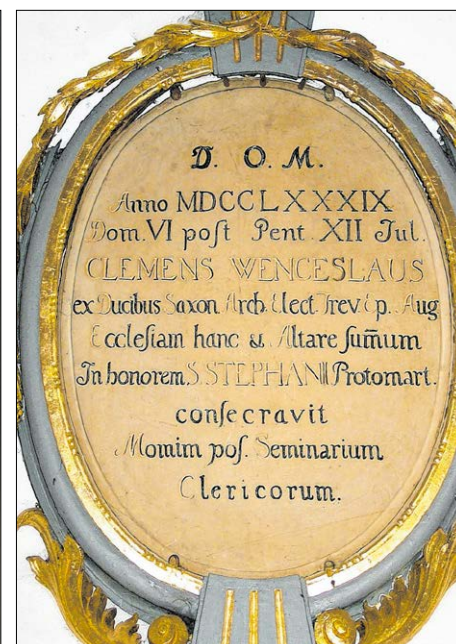 D. O. M.
Anno MDCCLXXXIX
Dom. VI poſt Pent. XII Jul.
CLEMENS WENCESLAUS
ex Ducibus Saxon. Arch. Elect. Trev. Ep. Aug
Eccleſiam hanc & Altare ſum̄um
In honorem S. STEPHANI Protomart.
conſecravit
Monim poſ. Seminarium
Clericorum.